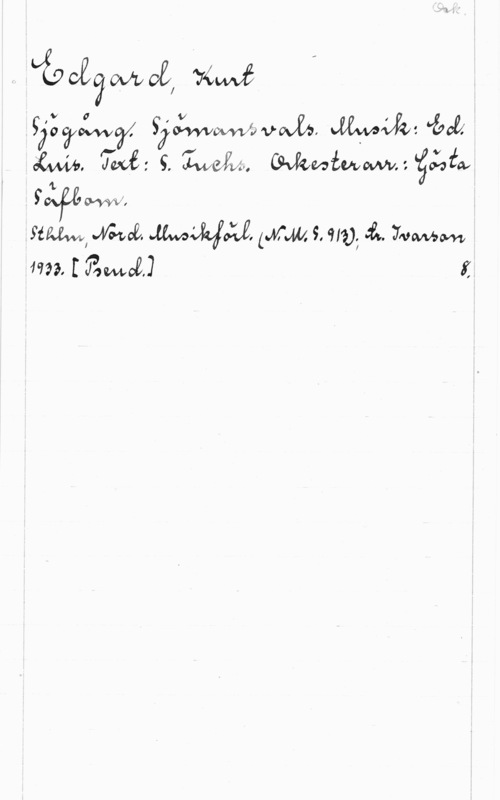 Ork.
Edgard, Kurt
Sjögång. Sjömansvals. Musik: Ed.
Luis. Text: S. Fuchs. Orkesterarr.: Gösta
Säfbom.
Sthlm, Nord. Musikförl. (N.M.S. 913); tr. Ivarson
1933. [Pseud.] 8.